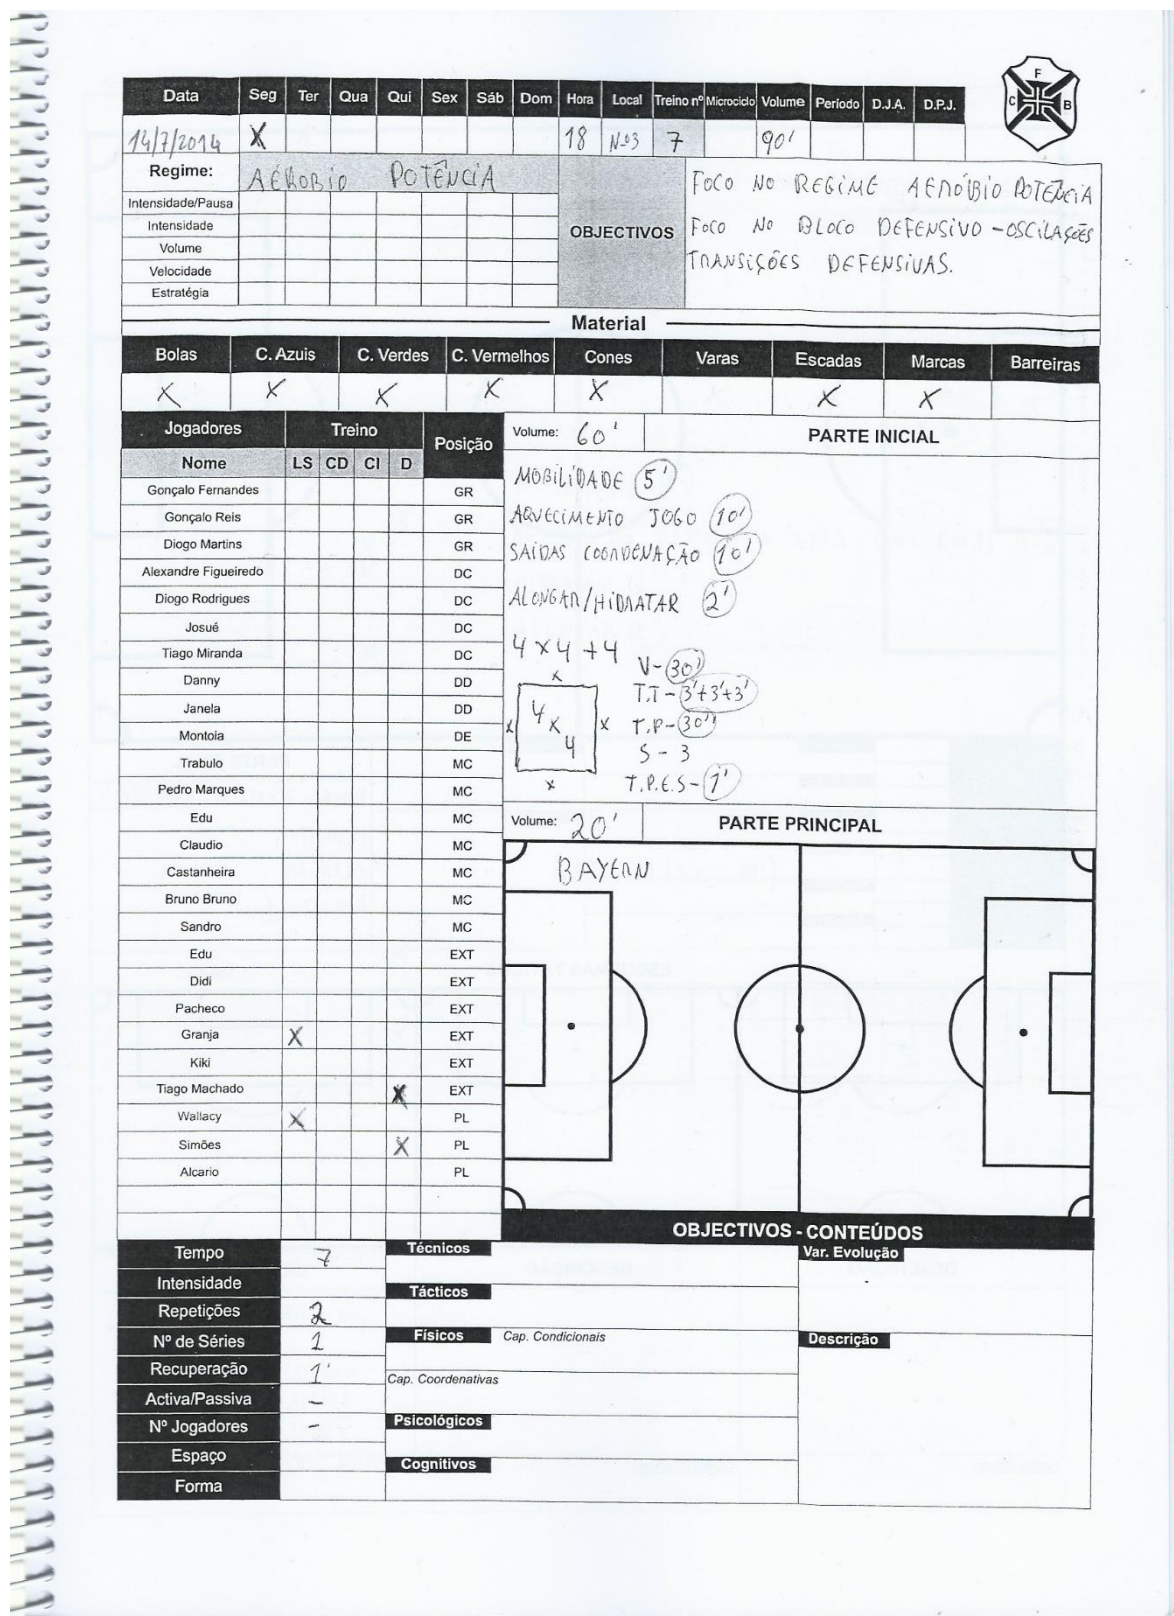 F
C B
Data Seg Ter Qua Qui Sex Sáb Dom Hora Local Treino nº Microciclo Volume Período D.J.A. D.P.J.
14/7/2014 X 18 Nº3 7 90'
Regime: AERÓBIO POTÊNCIA
Intensidade/Pausa
Intensidade
Volume
Velocidade
Estratégia
OBJECTIVOS
FOCO NO REGIME AERÓBIO POTÊNCIA
FOCO NO BLOCO DEFENSIVO - OSCILAÇÕES
TRANSIÇÕES DEFENSIVAS.
Material
Bolas C. Azuis C. Verdes C. Vermelhos Cones Varas Escadas Marcas Barreiras
X X X X X X X
Jogadores Treino Posição
Nome LS CD CI D
Gonçalo Fernandes GR
Gonçalo Reis GR
Diogo Martins GR
Alexandre Figueiredo DC
Diogo Rodrigues DC
Josué DC
Tiago Miranda DC
Danny DD
Janela DD
Montoia DE
Trabulo MC
Pedro Marques MC
Edu MC
Claudio MC
Castanheira MC
Bruno Bruno MC
Sandro MC
Edu EXT
Didi EXT
Pacheco EXT
Granja X EXT
Kiki EXT
Tiago Machado X EXT
Wallacy X PL
Simões X PL
Alcario PL
Volume: 60' PARTE INICIAL
MOBILIDADE 5'
AQUECIMENTO JOGO 10'
SAÍDAS COORDENAÇÃO 10'
ALONGAR/HIDRATAR 2'
4 x 4 + 4
x
x 4 x 4 x
x
V - 30'
T.T - 3'+3'+3'
T.P - 30''
S - 3
T.P.E.S - 1'
Volume: 20' PARTE PRINCIPAL
BAYERN
OBJECTIVOS - CONTEÚDOS
Tempo 7
Intensidade
Repetições 2
Nº de Séries 1
Recuperação 1'
Activa/Passiva -
Nº Jogadores -
Espaço
Forma
Técnicos
Tácticos
Físicos Cap. Condicionais
Cap. Coordenativas
Psicológicos
Cognitivos
Var. Evolução
Descrição